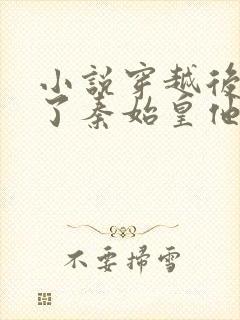 小說穿越後
了秦始皇他
不要掃雪